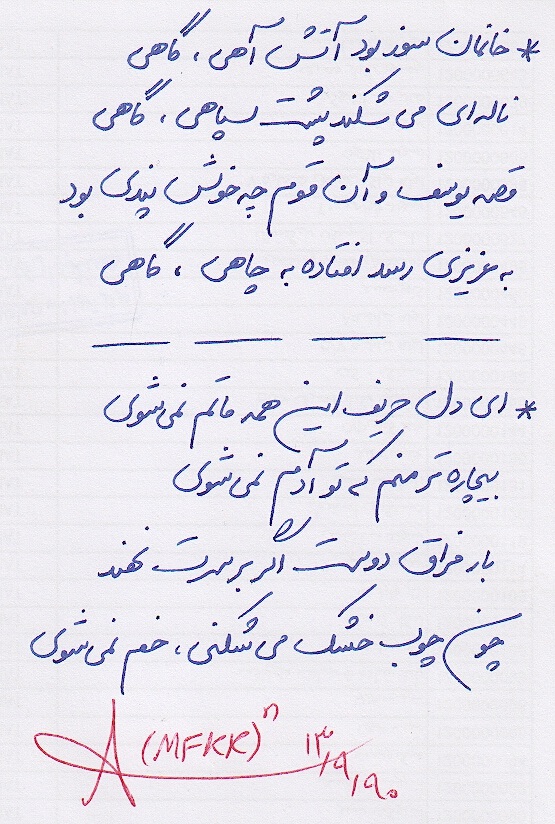 * خانمان سوز بود آتش آهی ، گاهی
ناله‌ای می شکند پشت سپاهی ، گاهی
قصه یوسف و آن قوم چه خوش پندی بود
به عزیزی رسد افتاده به چاهی ، گاهی
* ای دل حریف این همه ماتم نمی شوی
بیچاره تر منم که تو آدم نمی شوی
بار فراق دوست اگر بر سرت نهند
چون چوب خشک می شکنی ، خم نمی شوی
(MFKK)ⁿ ۹۰/۹/۱۳